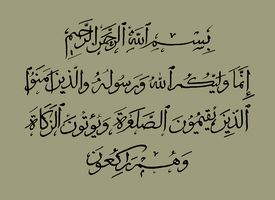 بِسْمِ اللَّهِ الرَّحْمَنِ الرَّحِيمِ
إِنَّمَا وَلِيُّكُمُ اللَّهُ وَرَسُولُهُ وَالَّذِينَ آمَنُوا
الَّذِينَ يُقِيمُونَ الصَّلَوٰةَ وَيُؤْتُونَ الزَّكَاةَ
وَهُمْ رَاكِعُونَ